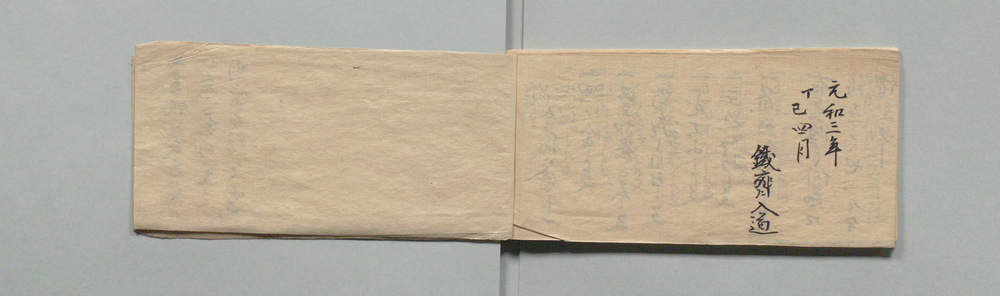 元和三年
丁巳四月
鐵齋入道